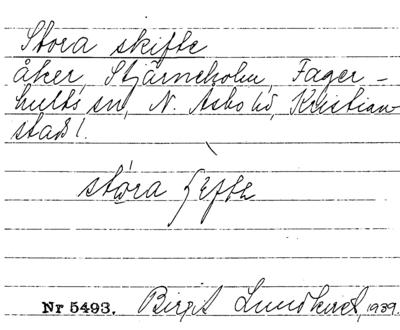 Stora skifte
åker, Stjärneholm, Fager-
hults sn, N. Åsbo hd, Kristian-
stads l.
stóra ʃefte
Nr 5493. Birgit Lundkvist, 1939.